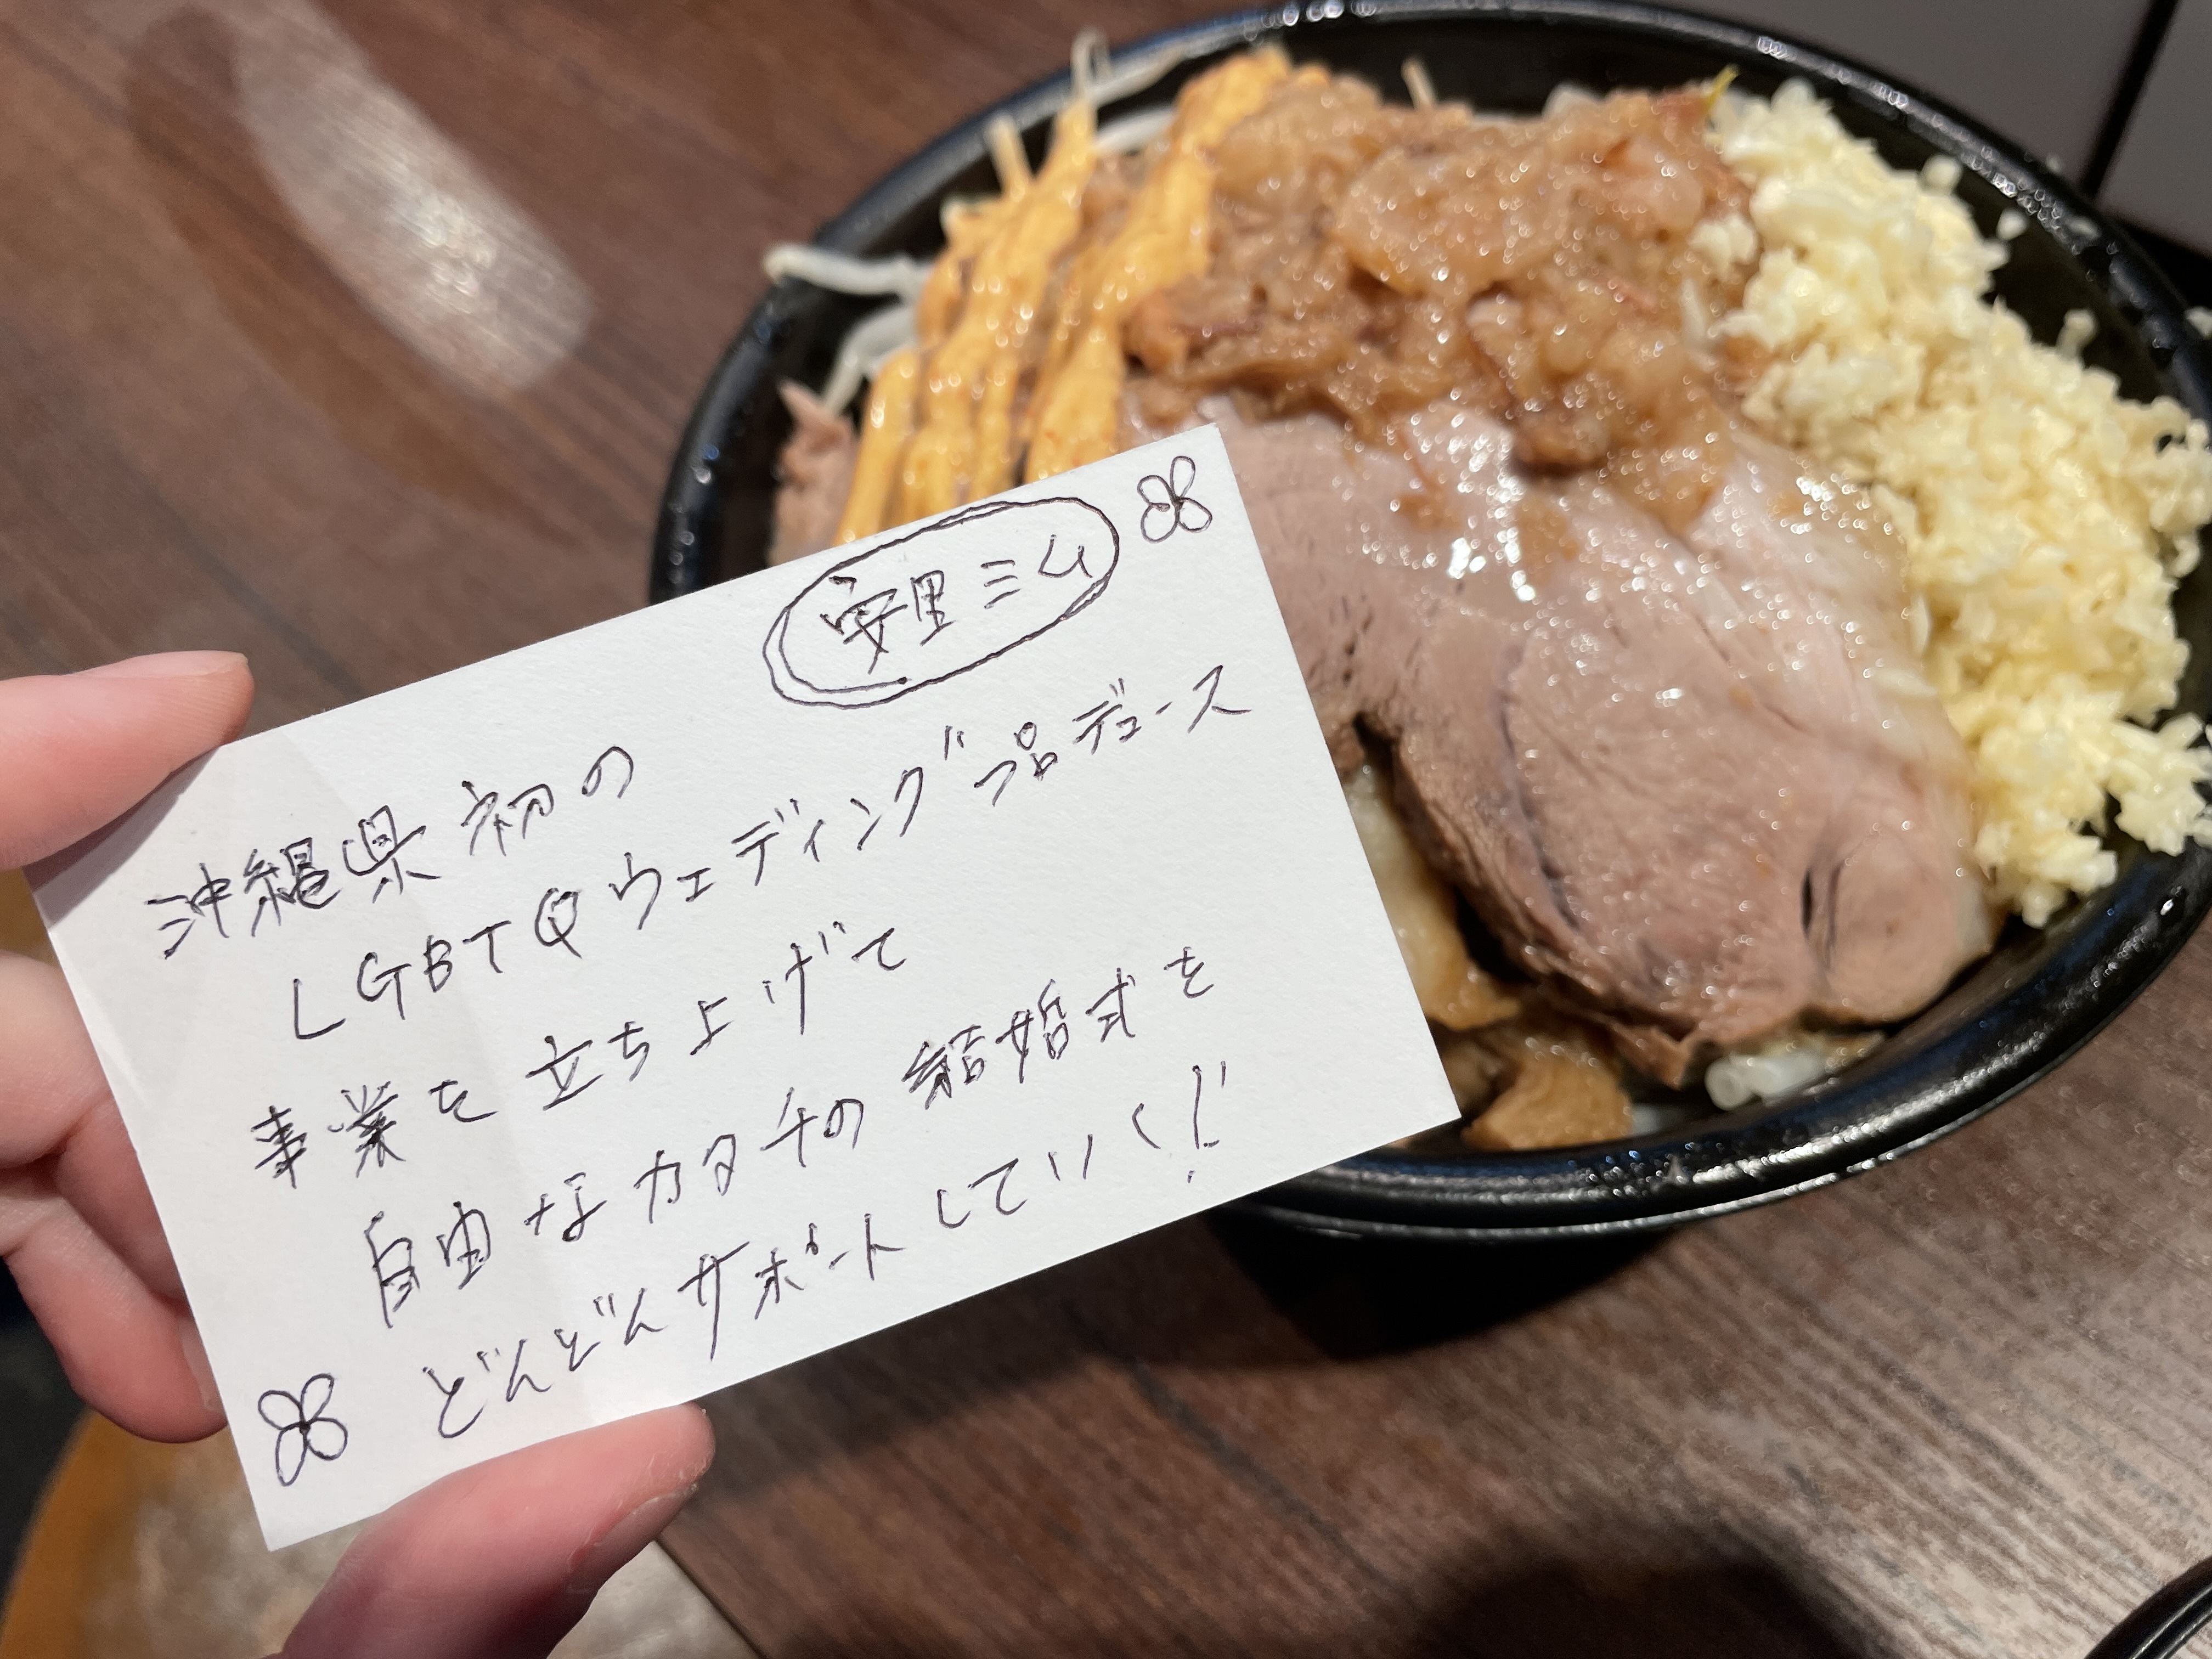 安里ミム
沖縄県初の
LGBTQウェディングプロデュース
事業を立ち上げて
自由なカタチの結婚式を
どんどんサポートしていく!